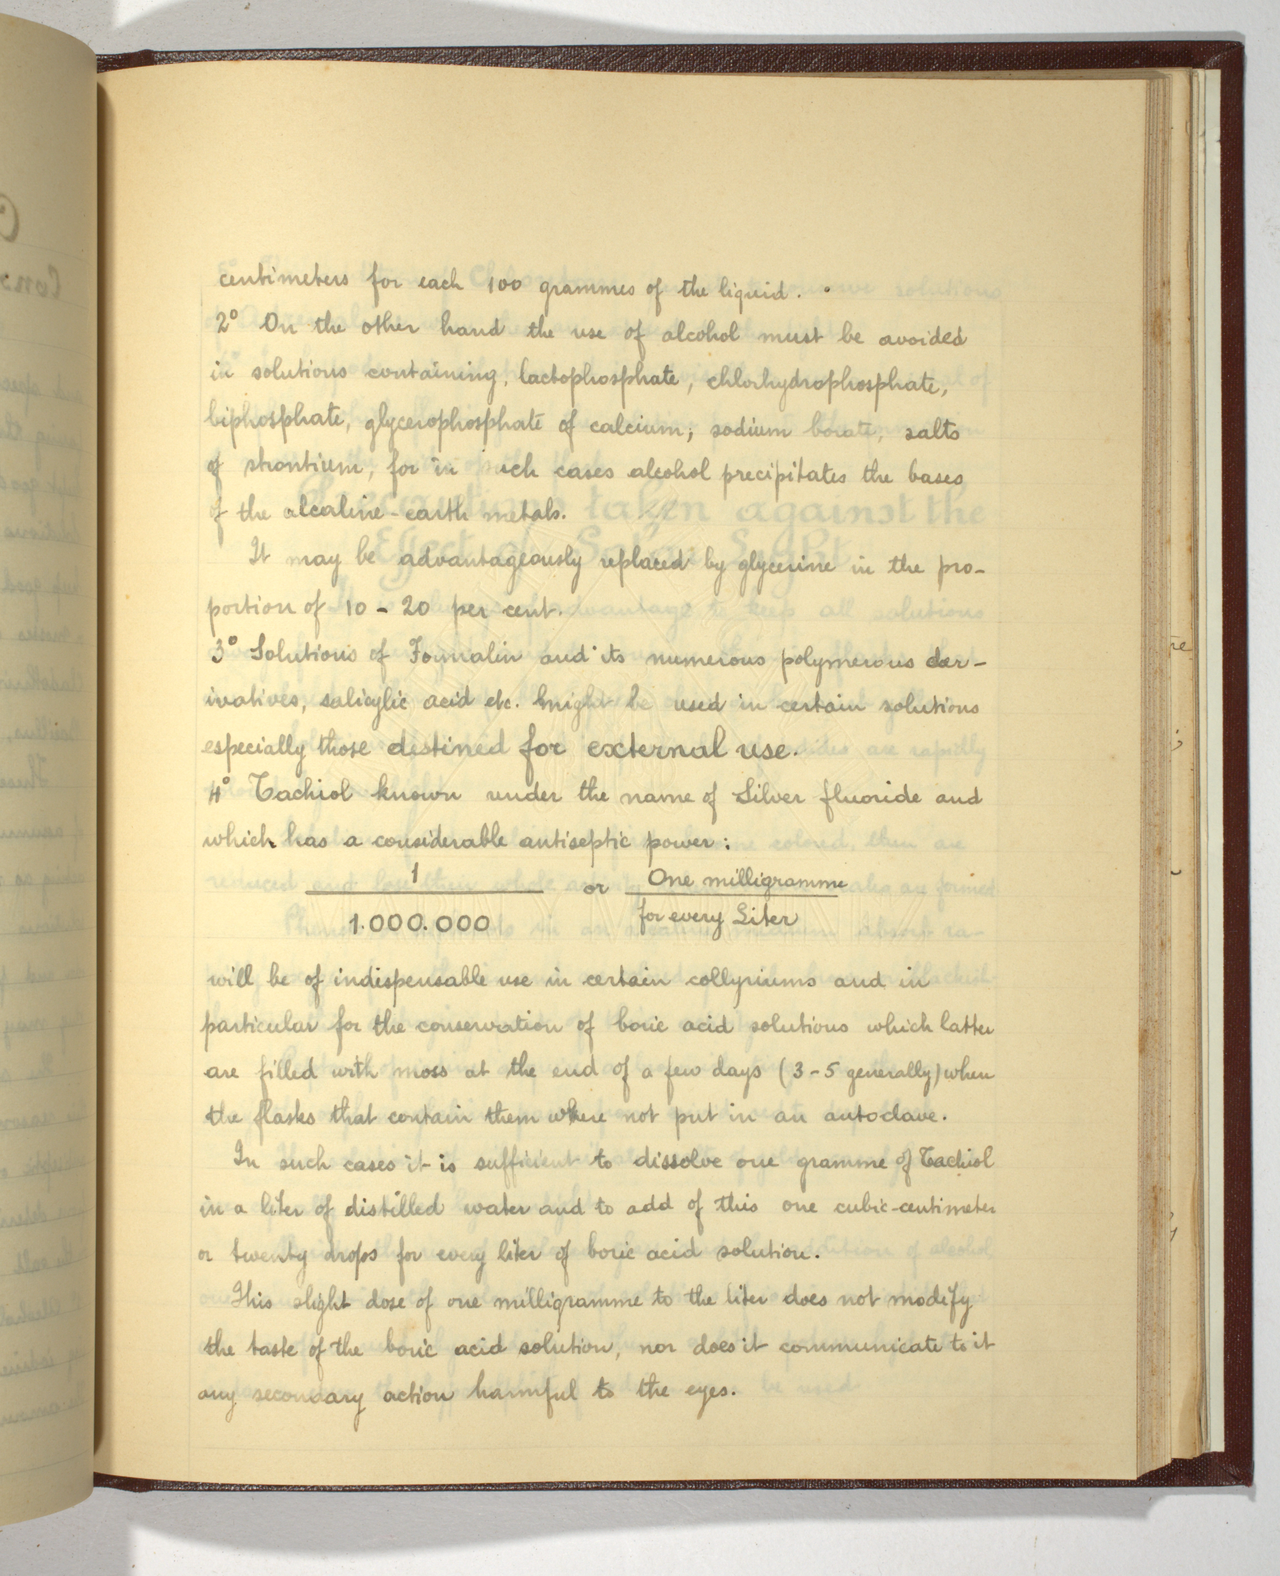 centimeters for each 100 grammes of the liquid.
2° On the other hand the use of alcohol must be avoided
in solutions containing, lactophosphate, chlorhydrophosphate,
biphosphate, glycerophosphate of calcium; sodium borate, salts
of strontium, for in such cases alcohol precipitates the bases
of the alcaline-earth metals.
It may be advantageously replaced by glycerine in the pro-
portion of 10 - 20 per cent.
3° Solutions of Formalin and its numerous polymerous der-
ivatives, salicylic acid etc. might be used in certain solutions
especially those destined for external use.
4° Tachiol known under the name of Silver fluoride and
which has a considerable antiseptic power:
1 or One milligramme
1.000.000 for every Liter
will be of indispensable use in certain collyriums and in
particular for the conservation of boric acid solutions which latter
are filled with moss at the end of a few days (3-5 generally) when
the flasks that contain them where not put in an autoclave.
In such cases it is sufficient to dissolve one gramme of Tachiol
in a liter of distilled water and to add of this one cubic-centimeter
or twenty drops for every liter of boric acid solution.
This slight dose of one milligramme to the liter does not modify
the taste of the boric acid solution, nor does it communicate to it
any secondary action harmful to the eyes.